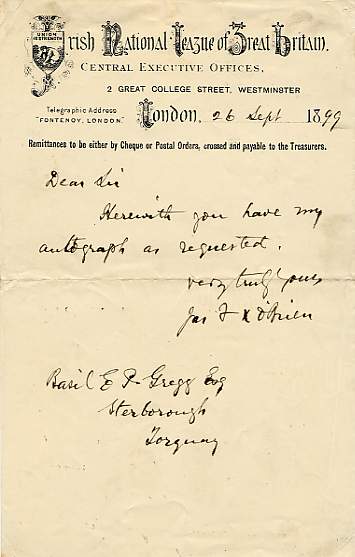 UNION
IS STRENGTH
Irish National League of Great Britain.
CENTRAL EXECUTIVE OFFICES,
2 GREAT COLLEGE STREET, WESTMINSTER
Telegraphic Address
"FONTENOY, LONDON."
London, 26 Sept 1899
Remittances to be either by Cheque or Postal Orders, crossed and payable to the Treasurers.
Dear Sir
Herewith you have my
autograph as requested.
very truly yours
Jas F X O'Brien
Basil E P. Gregg Esq
Sterborough
Torquay